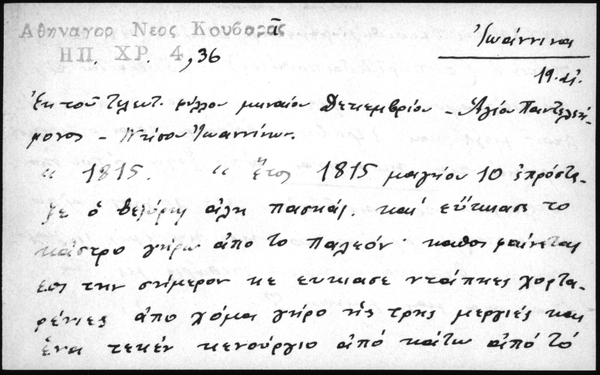 Αθηναγορ Νεος Κουβαρᾶς
ΗΠ. ΧΡ. 4, 36
Ἰωάννινα
19. Δ.
Ἐκ τοῦ τελευτ. φύλλου μηναίου Δεκεμβρίου – Ἁγίου Παντελεή-
μονος – Νήσου Ἰωαννίνων.
" 1815. " ἔτος 1815 μαγίου 10 ἐπρόστα-
ξε ὁ βεζύρης ἀλή πασιάς. καί εὔτιασε το
κάστρο γήρω ἀπο το παλεόν· καθος φαίνεται
εος την σήμερον κε ευτιασε ντάπιες χορτα-
ρένιες ἀπο χόμα γήρο τις τρης μεργιές και
ἕνα τεκέν κενούργιο ἀπό κάτω ἀπό τό